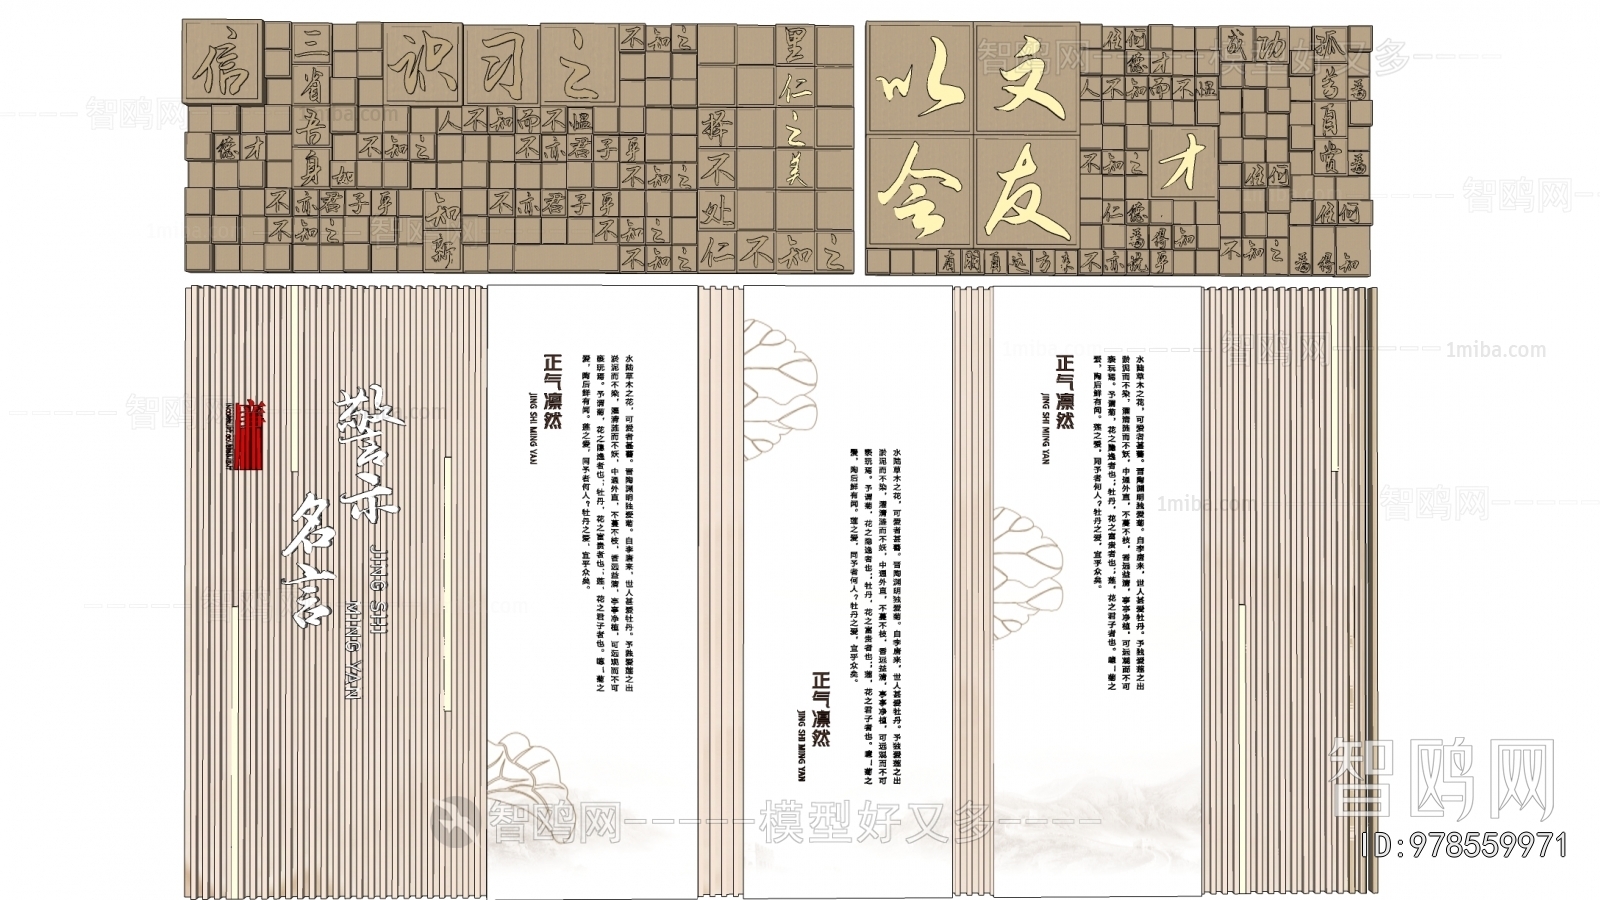 信
三省吾身
识习之
不知之
人不知而不愠
德才
不知之
不亦君子乎
如
不知之
不亦君子乎
知新
不亦君子乎
不知之
不知之
不知之
择不处仁
里仁之美
不知之
以文
会友
任何
德才
人不知而不愠
成功
孤芳自赏
为
不知之
才
任何
为
仁德
任何
为得知
有朋自远方来不亦说乎
不知之
为得知
警示
名言
JING SHI
MING YAN
廉
正气凛然
JING SHI MING YAN
水陆草木之花，可爱者甚蕃。晋陶渊明独爱菊。自李唐来，世人甚爱牡丹。予独爱莲之出
淤泥而不染，濯清涟而不妖，中通外直，不蔓不枝，香远益清，亭亭净植，可远观而不可
亵玩焉。予谓菊，花之隐逸者也；牡丹，花之富贵者也；莲，花之君子者也。噫！菊之
爱，陶后鲜有闻。莲之爱，同予者何人？牡丹之爱，宜乎众矣。
水陆草木之花，可爱者甚蕃。晋陶渊明独爱菊。自李唐来，世人甚爱牡丹。予独爱莲之出
淤泥而不染，濯清涟而不妖，中通外直，不蔓不枝，香远益清，亭亭净植，可远观而不可
亵玩焉。予谓菊，花之隐逸者也；牡丹，花之富贵者也；莲，花之君子者也。噫！菊之
爱，陶后鲜有闻。莲之爱，同予者何人？牡丹之爱，宜乎众矣。
正气凛然
JING SHI MING YAN
正气凛然
JING SHI MING YAN
水陆草木之花，可爱者甚蕃。晋陶渊明独爱菊。自李唐来，世人甚爱牡丹。予独爱莲之出
淤泥而不染，濯清涟而不妖，中通外直，不蔓不枝，香远益清，亭亭净植，可远观而不可
亵玩焉。予谓菊，花之隐逸者也；牡丹，花之富贵者也；莲，花之君子者也。噫！菊之
爱，陶后鲜有闻。莲之爱，同予者何人？牡丹之爱，宜乎众矣。
智鸥网-----模型好又多----
1miba.com
1miba.com
智鸥网
ID:978559971